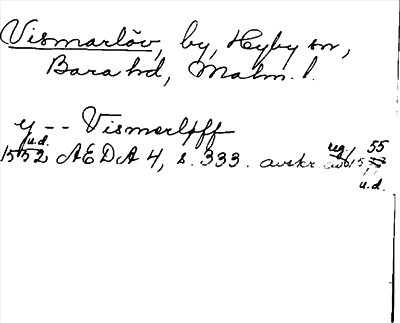 Vismarlöv, by, Hyby sn,
Bara hd, Malm. l.
y -- Vismerløff
u.d.
1552 AEDA 4, s. 333. avskr. 15
reg. 55
u.d.